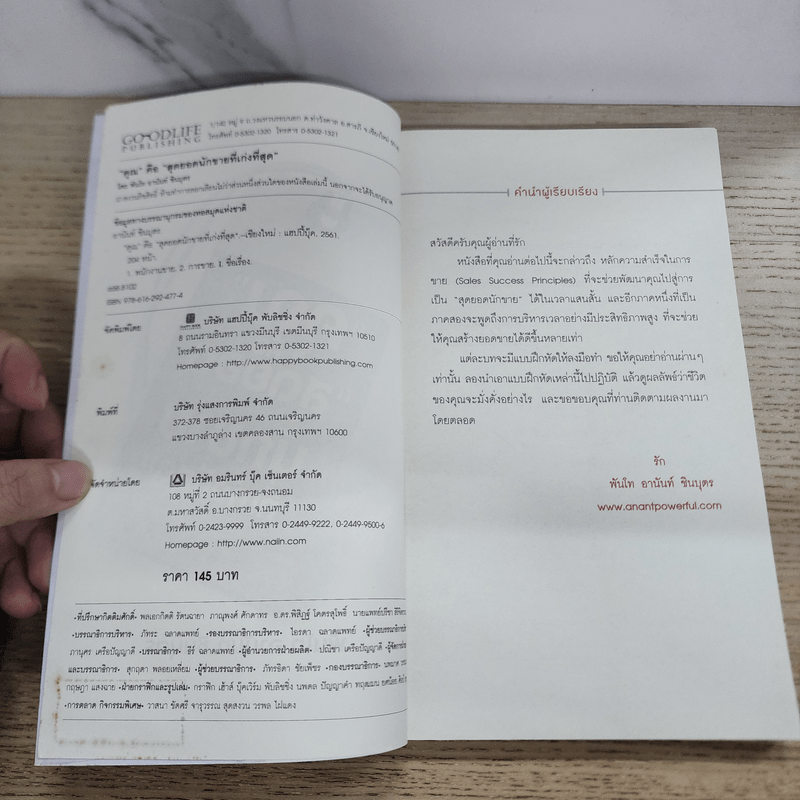 GOODLIFE
PUBLISHING
โทรศัพท์ 0-5302-1320 โทรสาร 0-5302-1321
"คุณ" คือ "สุดยอดนักขายที่เก่งที่สุด"
โดย พันโท อานันท์ ชินบุตร
ข้อมูลทางบรรณานุกรมของหอสมุดแห่งชาติ
อานันท์ ชินบุตร
"คุณ" คือ "สุดยอดนักขายที่เก่งที่สุด".--เชียงใหม่ : แฮปปี้บุ๊ค, 2561.
หน้า
1. พนักงานขาย. 2. การขาย. I. ชื่อเรื่อง.
658.8102
ISBN 978-616-292-477-4
จัดพิมพ์โดย
บริษัท แฮปปี้บุ๊ค พับลิชชิ่ง จำกัด
8 ถนนรามอินทรา แขวงมีนบุรี เขตมีนบุรี กรุงเทพฯ 10510
โทรศัพท์ 0-5302-1320 โทรสาร 0-5302-1321
Homepage : http://www.happybookpublishing.com
พิมพ์ที่
บริษัท รุ่งแสงการพิมพ์ จำกัด
372-378 ซอยเจริญนคร 46 ถนนเจริญนคร
แขวงบางลำภูล่าง เขตคลองสาน กรุงเทพฯ 10600
จัดจำหน่ายโดย
บริษัท อมรินทร์ บุ๊ค เซ็นเตอร์ จำกัด
108 หมู่ที่ 2 ถนนบางกรวย-จงถนอม
ต.มหาสวัสดิ์ อ.บางกรวย จ.นนทบุรี 11130
โทรศัพท์ 0-2423-9999 โทรสาร 0-2449-9222, 0-2449-9500-6
Homepage : http://www.naiin.com
ราคา 145 บาท
•ที่ปรึกษากิตติมศักดิ์• พลเอกกิตติ รัตนฉายา ภาณุพงศ์ ศักดาทร อ.ดร.พิสิฏฐ์ โคตรสุโพธิ์ นายแพทย์ปรีชา
•บรรณาธิการบริหาร• ภัทระ ฉลาดแพทย์ •รองบรรณาธิการบริหาร• โอรดา ฉลาดแพทย์ •ผู้ช่วยบรรณาธิการบริหาร
ภานุศร เครือปัญญาดี •บรรณาธิการ• ธีร์ ฉลาดแพทย์ •ผู้อำนวยการฝ่ายผลิต• ปณิชา เครือปัญญาดี
และบรรณาธิการ• สุกฤตา พลอยเหลี่ยม •ผู้ช่วยบรรณาธิการ• ภัทรธิดา ชัยเพ็ชร •กองบรรณาธิการ•
กฤษฎา แสงฉาย •ฝ่ายกราฟิกและรูปเล่ม• กราฟิก เฮ้าส์ บุ๊คเวิร์ม พับลิชชิ่ง นพดล ปัญญาคำ
•การตลาด กิจกรรมพิเศษ• วาสนา ขัดศรี จารุวรรณ สุดสงวน วรพล ไฝแดง
คำนำผู้เรียบเรียง
สวัสดีครับคุณผู้อ่านที่รัก
หนังสือที่คุณอ่านต่อไปนี้จะกล่าวถึง หลักความสำเร็จในการ
ขาย (Sales Success Principles) ที่จะช่วยพัฒนาคุณไปสู่การ
เป็น "สุดยอดนักขาย" ได้ในเวลาแสนสั้น และอีกภาคหนึ่งที่เป็น
ภาคสองจะพูดถึงการบริหารเวลาอย่างมีประสิทธิภาพสูง ที่จะช่วย
ให้คุณสร้างยอดขายได้ดีขึ้นหลายเท่า
แต่ละบทจะมีแบบฝึกหัดให้ลงมือทำ ขอให้คุณอย่าอ่านผ่านๆ
เท่านั้น ลองนำเอาแบบฝึกหัดเหล่านี้ไปปฏิบัติ แล้วดูผลลัพธ์ว่าชีวิต
ของคุณจะมั่งคั่งอย่างไร และขอขอบคุณที่ท่านติดตามผลงานมา
โดยตลอด
รัก
พันโท อานันท์ ชินบุตร
www.anantpowerful.com